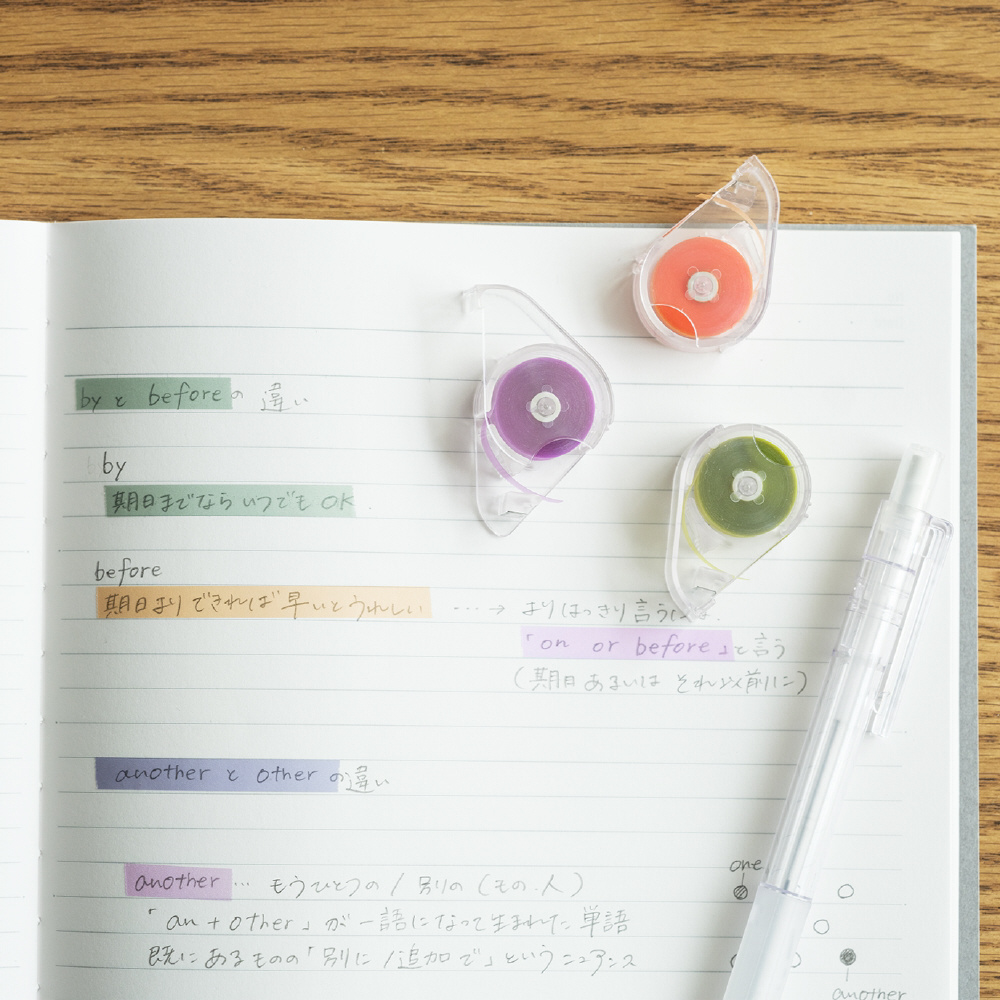 by と before の違い
by
期日までなら いつでも OK
before
期日よりできれば早いとうれしい ····→ よりはっきり言うには
「on or before」と言う
(期日あるいは それ以前に)
another と other の違い
another ··· もうひとつの / 別の (もの.人)
「an + other」が一語になって生まれた単語
既にあるものの「別に / 追加で」というニュアンス
one
another